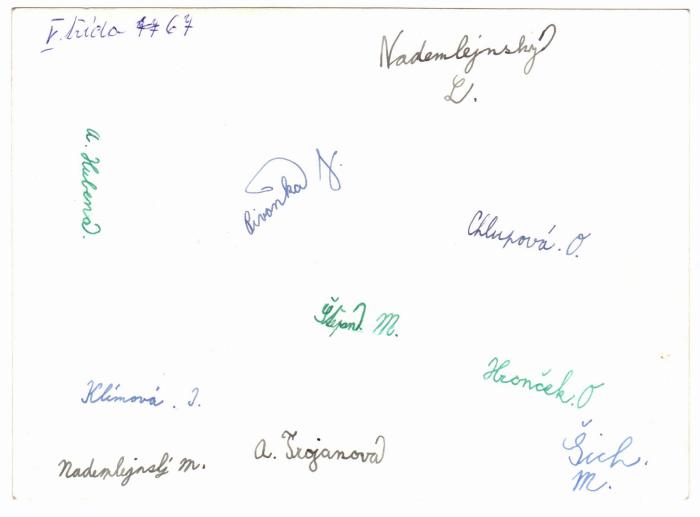 V. třída 67
Nademlejnský
L.
A. Hubená.
Pivonka
Chlupová. O.
Štěpán. M.
Hronček. O
Klímová. J.
Šich.
M.
A. Trojanová
Nademlejnský M.